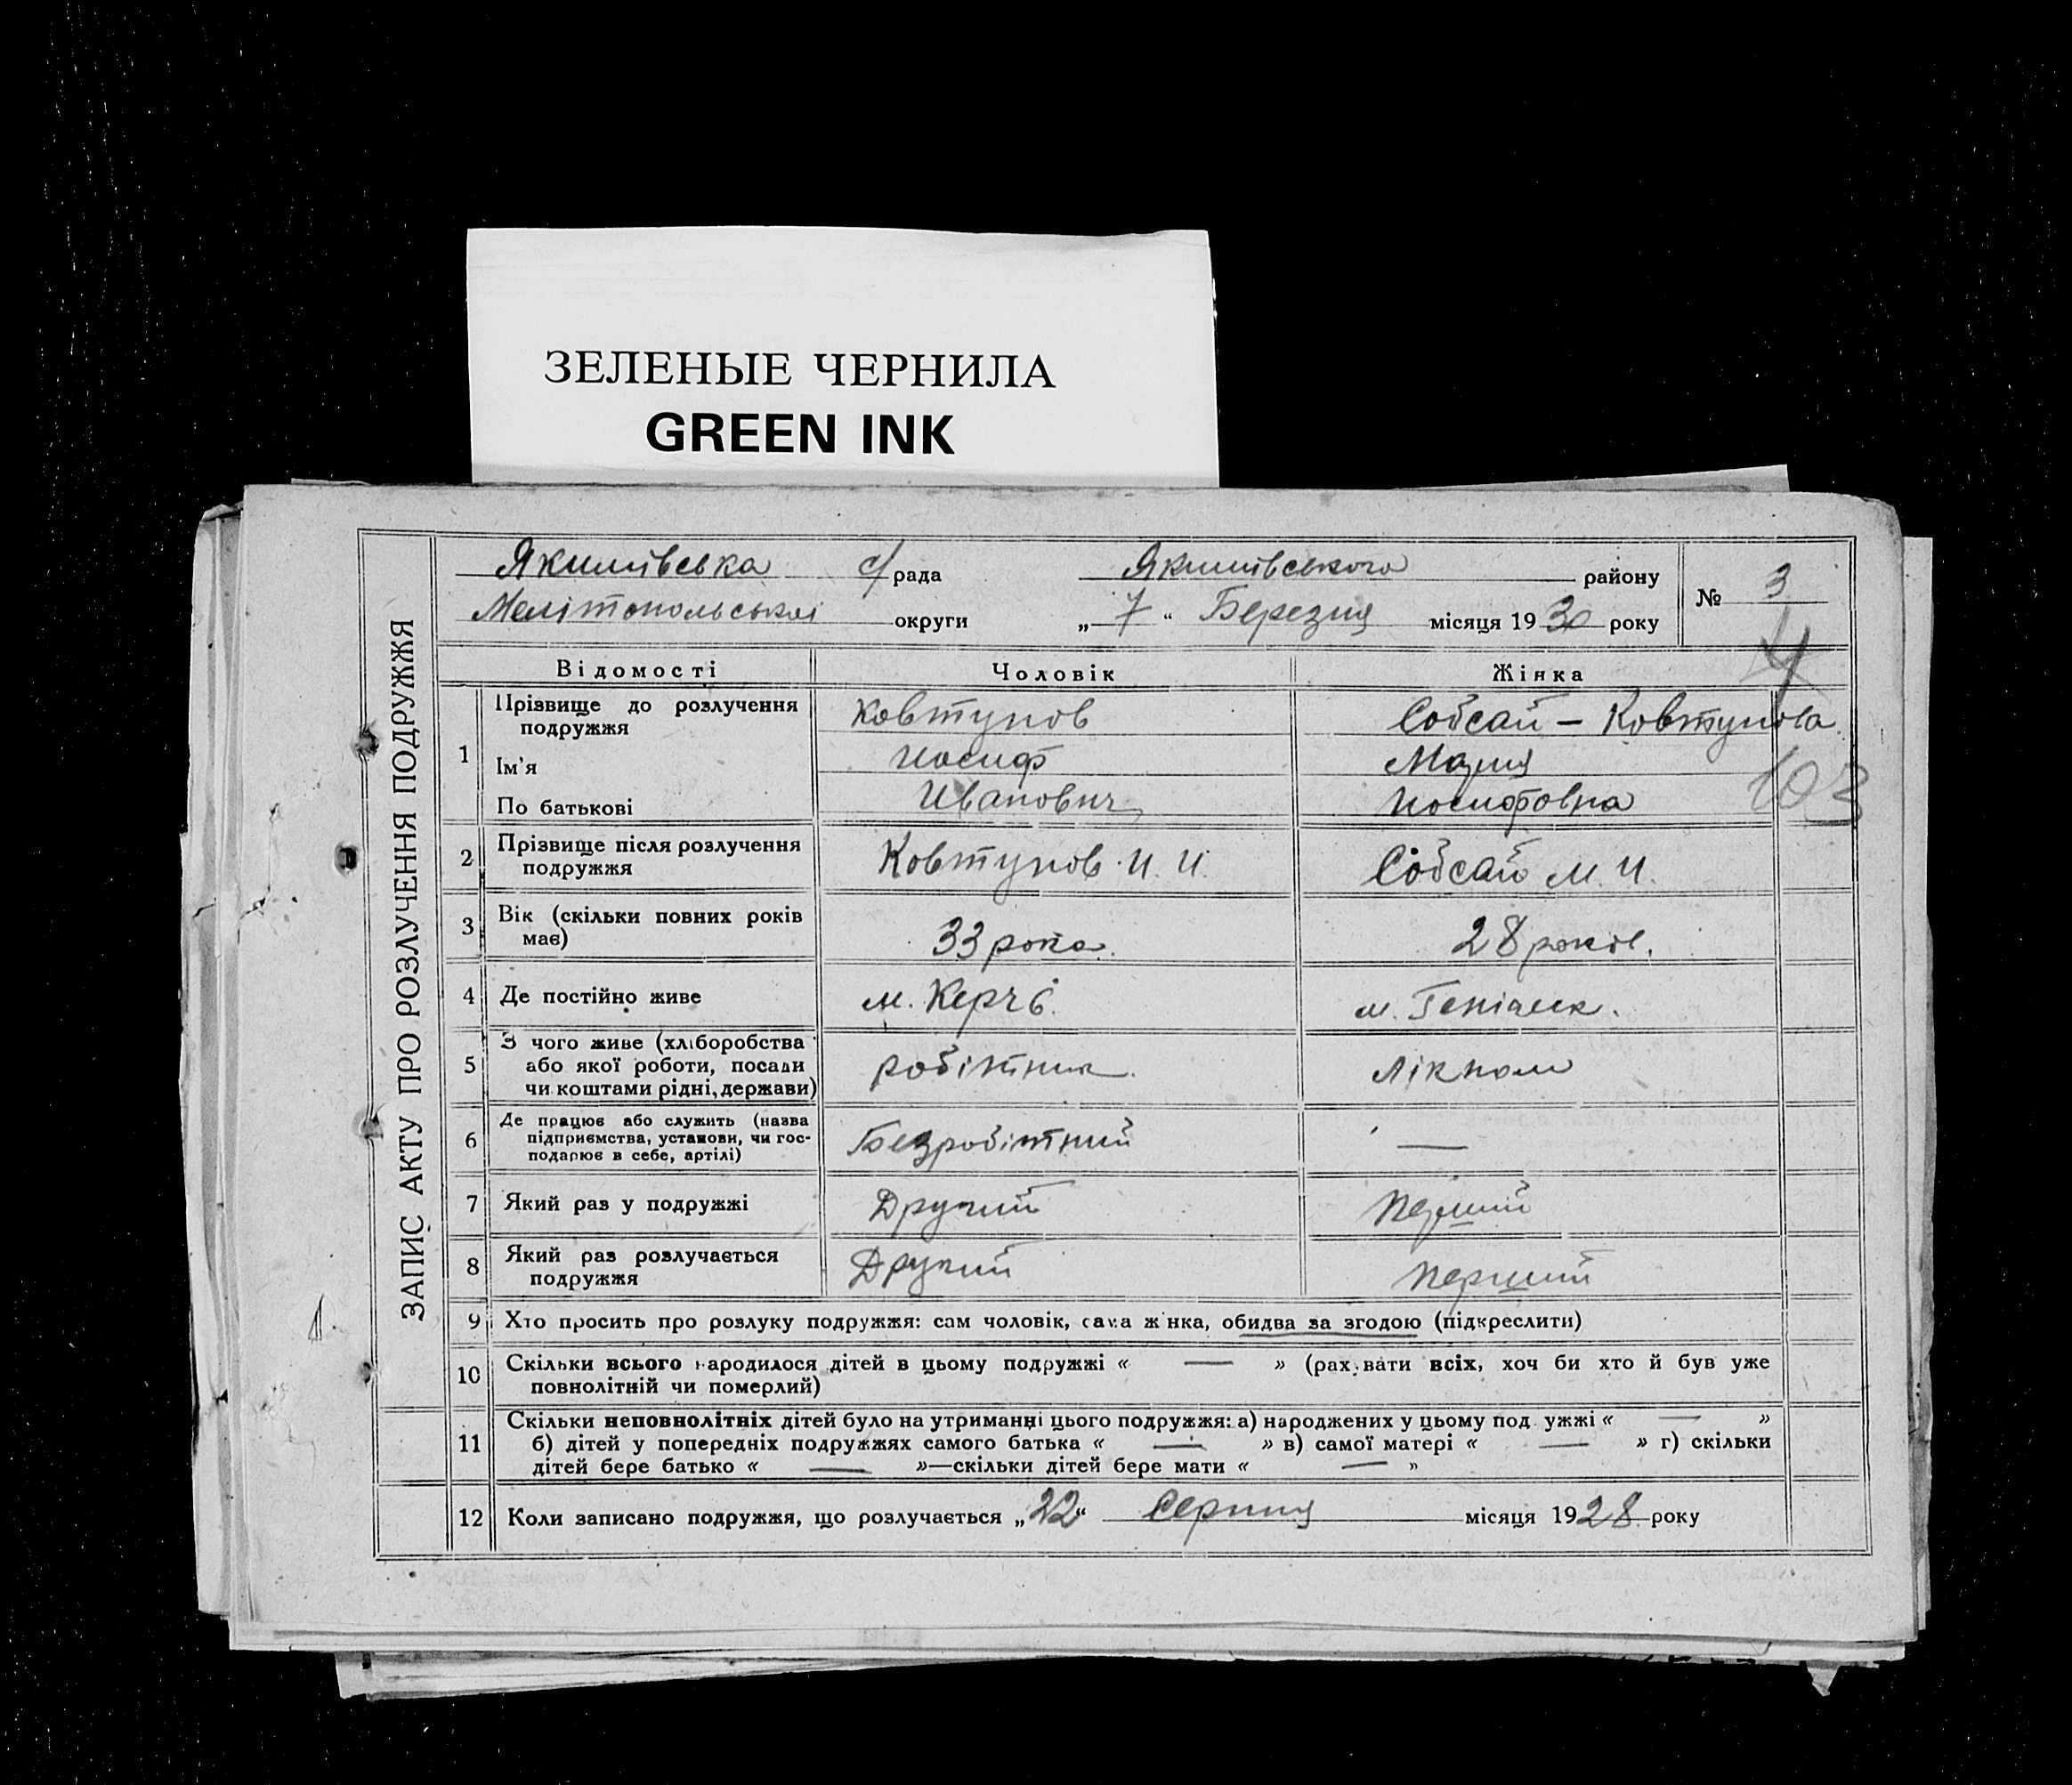 ЗЕЛЕНЫЕ ЧЕРНИЛА
GREEN INK
ЗАПИС АКТУ ПРО РОЗЛУЧЕННЯ ПОДРУЖЖЯ
Якимівська с/рада Якимівського району № 3
Мелітопольської округи „7“ Березня місяця 1930 року
4
Відомості Чоловік Жінка
1 Прізвище до розлучення подружжя Ковтунов Собсай – Ковтунова
Ім'я Иосиф Мария
По батькові Иванович Иосифовна 103
2 Прізвище після розлучення подружжя Ковтунов И. И. Собсай М. И.
3 Вік (скільки повних років має) 33 рока. 28 років.
4 Де постійно живе м. Керчь. м. Геніческ.
5 З чого живе (хліборобства або якої роботи, посади чи коштами рідні, держави) робітник. Лікпом
6 Де працює або служить (назва підприємства, установи, чи господарює в себе, артілі) Безробітний —
7 Який раз у подружжі Другий Перший
8 Який раз розлучається подружжя Другий Перший
9 Хто просить про розлуку подружжя: сам чоловік, сама жінка, обидва за згодою (підкреслити)
10 Скільки всього народилося дітей в цьому подружжі « — » (рахувати всіх, хоч би хто й був уже
повнолітній чи померлий)
11 Скільки неповнолітніх дітей було на утриманні цього подружжя: а) народжених у цьому подружжі « — »
б) дітей у попередніх подружжях самого батька « — » в) самої матері « — » г) скільки
дітей бере батько « — »—скільки дітей бере мати « — »
12 Коли записано подружжя, що розлучається „22“ Серпня місяця 1928 року